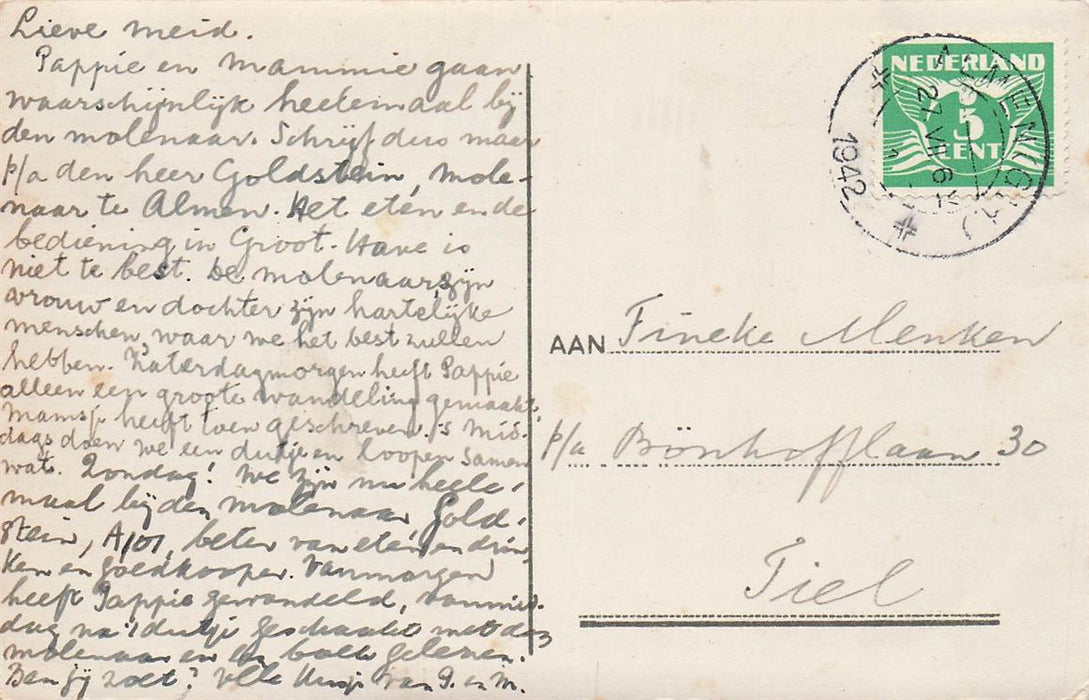 Lieve meid.
Pappie en Mammie gaan
waarschijnlijk heelemaal bij
den molenaar. Schrijf dus maar
p/a den heer Goldstein, mole-
naar te Almen. Het eten en de
bediening in Groot-Have is
niet te best. De molenaar, zijn
vrouw en dochter zijn hartelijke
menschen, waar we het best zullen
hebben. Zaterdagmorgen heeft Pappie
alleen een groote wandeling gemaakt,
Mamsje heeft toen geschreven. 's Mid-
dags doen we een dutje en loopen samen
wat. Zondag! We zijn nu heele-
maal bij den molenaar Gold-
stein, beter van eten en drin-
ken en goedkooper. Vanmorgen
heeft Pappie gewandeld, vanmid-
dag na 't dutje geschaakt met den
molenaar en een boek gelezen.
Ben jij zoet? Volle kusjes van P. en M.
NEDERLAND
5
CENT
1942
AAN Fineke Menken
p/a Bönhofflaan 30
Tiel